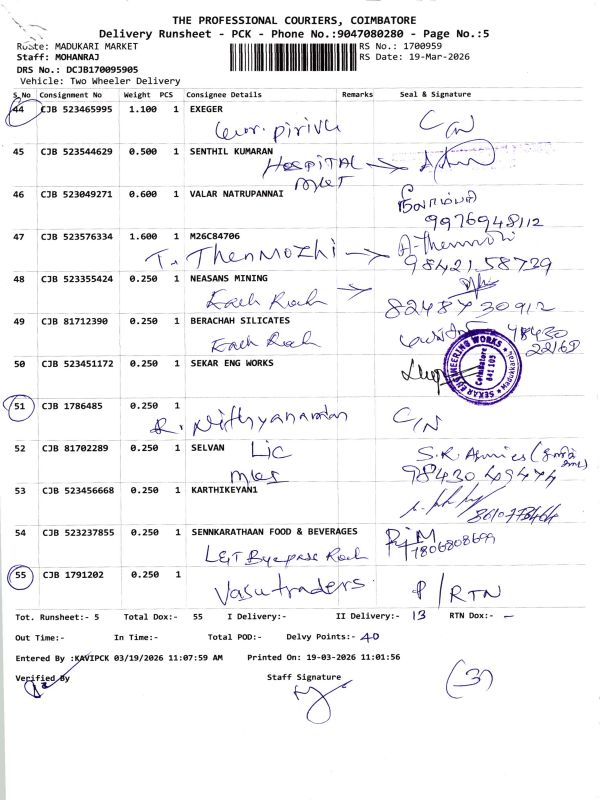 THE PROFESSIONAL COURIERS, COIMBATORE
Delivery Runsheet - PCK - Phone No.:9047080280 - Page No.:5
Route: MADUKARI MARKET
RS No.: 1700959
Staff: MOHANRAJ
RS Date: 19-Mar-2026
DRS No.: DCJB170095905
Vehicle: Two Wheeler Delivery
S.No Consignment No Weight PCS Consignee Details Remarks Seal & Signature
44 CJB 523465995 1.100 1 EXEGER
C/N
45 CJB 523544629 0.500 1 SENTHIL KUMARAN
HOSPITAL
46 CJB 523049271 0.600 1 VALAR NATRUPANNAI
9976948112
47 CJB 523576334 1.600 1 M26C84706
T. Thenmozhi A-Thenmozhi
98421 58739
48 CJB 523355424 0.250 1 NEASANS MINING
49 CJB 81712390 0.250 1 BERACHAH SILICATES
50 CJB 523451172 0.250 1 SEKAR ENG WORKS
SEKAR ENGINEERING WORKS
Coimbatore
641 105
Madukkarai
51 CJB 1786485 0.250 1
R. Nithyanandan C/N
52 CJB 81702289 0.250 1 SELVAN
Lic
98430 49474
53 CJB 523456668 0.250 1 KARTHIKEYAN1
54 CJB 523237855 0.250 1 SENNKARATHAAN FOOD & BEVERAGES
L&T Byepass Road
7806808699
55 CJB 1791202 0.250 1
Vasu traders P/RTN
Tot. Runsheet:- 5 Total Dox:- 55 I Delivery:- II Delivery:- 13 RTN Dox:- -
Out Time:- In Time:- Total POD:- Delvy Points:- 40
Entered By :KAVIPCK 03/19/2026 11:07:59 AM Printed On: 19-03-2026 11:01:56
Verified By Staff Signature
(3)